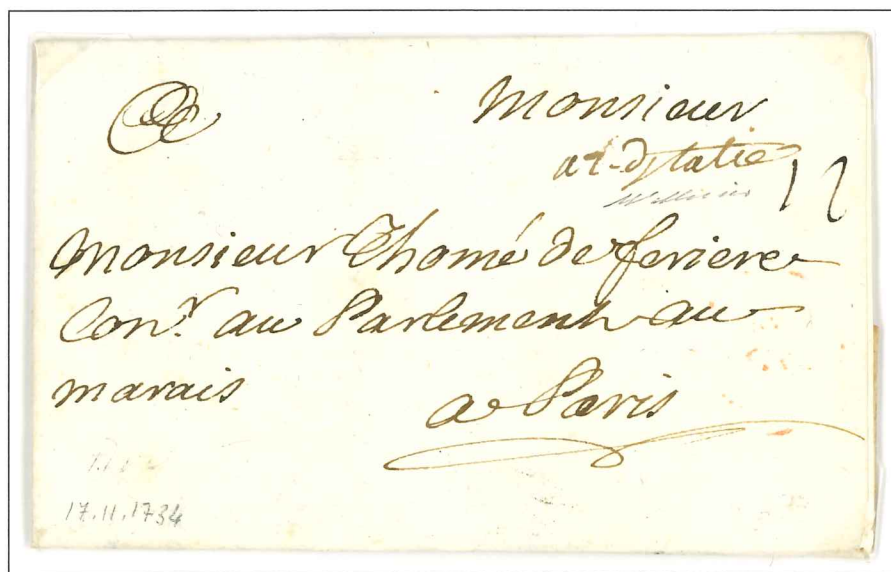 Monsieur
ar-dytalie
12
Monsieur Thomé de feriere
Con.r au Parlement au
marais
a Paris
17.11.1734